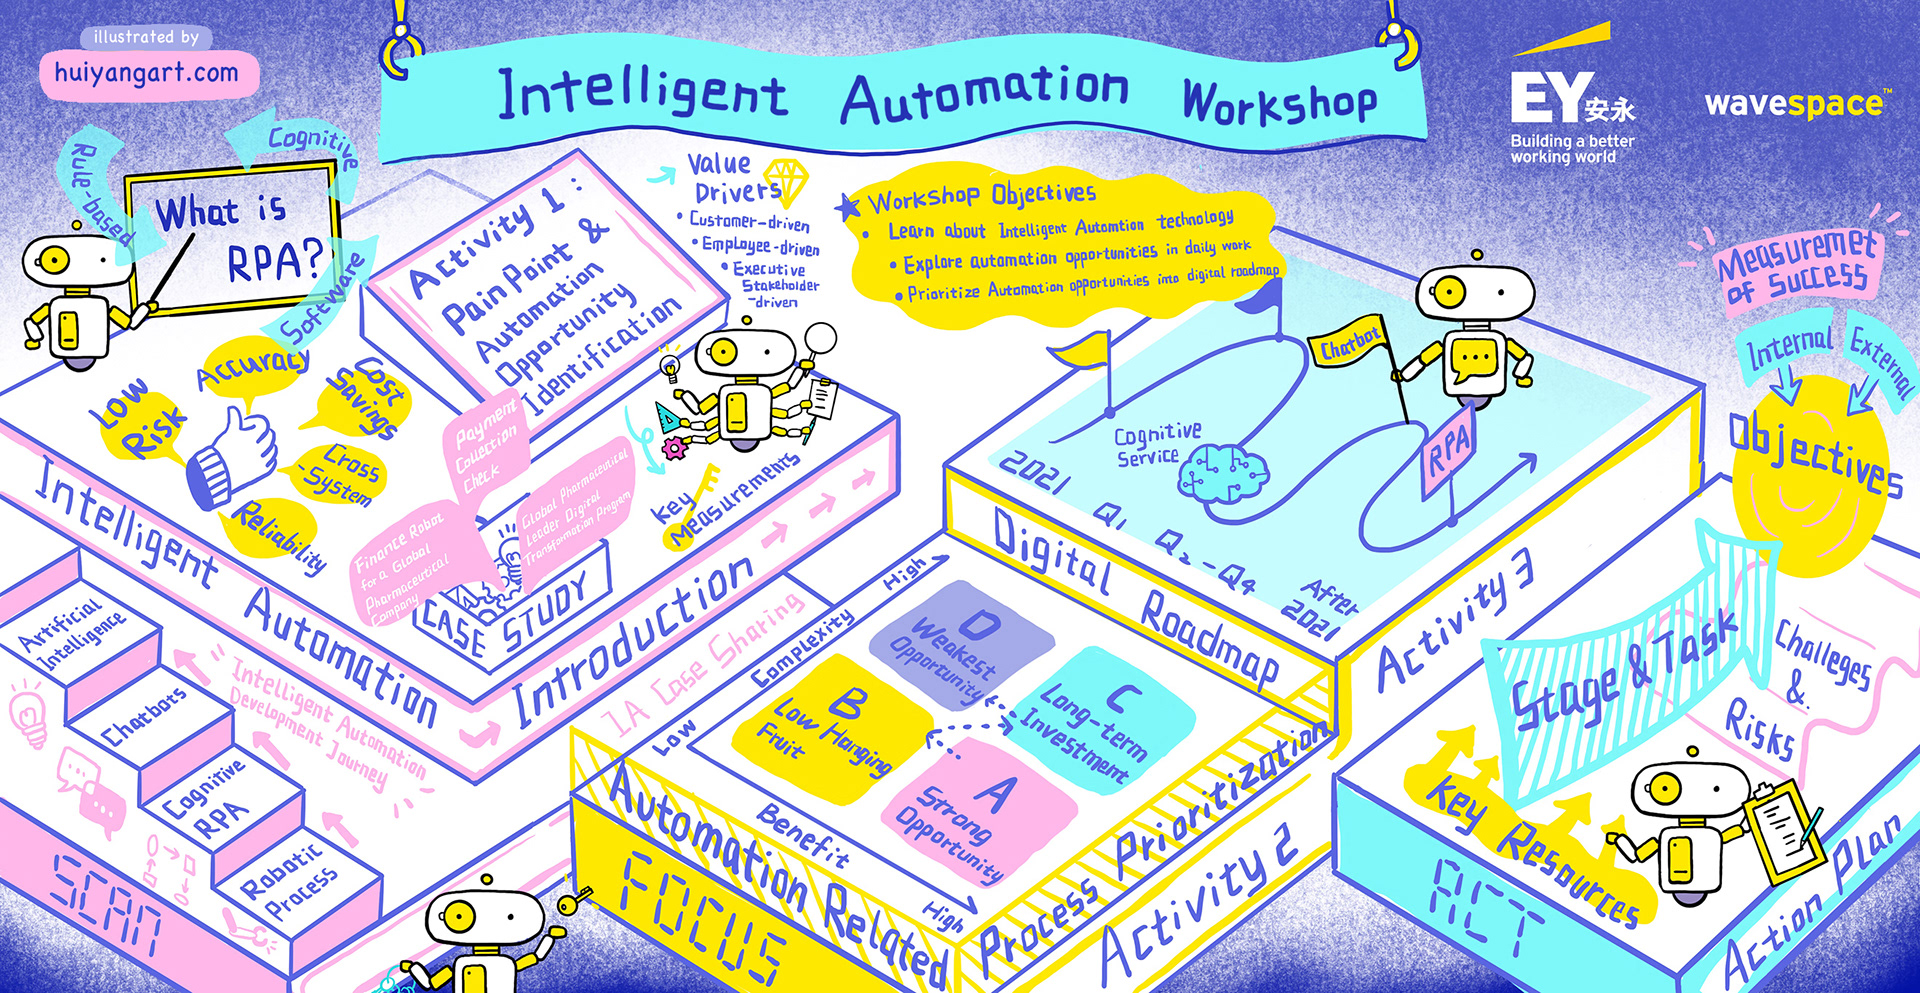 illustrated by
huiyangart.com
Intelligent Automation Workshop
EY安永
Building a better
working world
wavespace™
Rule based
Cognitive
Software
What is
RPA?
Low
Risk
Accuracy
Cost
Savings
Cross
-System
Reliability
Activity 1:
Pain Point &
Automation
Opportunity
Identification
Value
Drivers
• Customer-driven
• Employee-driven
• Executive
Stakeholder
-driven
Workshop Objectives
• Learn about Intelligent Automtion technology
• Explore automation opportunities in daily work
• Prioritize Automation opportunities into digital roadmap
Payment
Collection
Check
Finance Robot
for a Global
Pharmaceutical
Company
Global Pharmaceutical
Leader Digital
Transformation Program
CASE STUDY
Key
Measurements
Intelligent Automation
Introduction
Artificial
Intelligence
Chatbots
Cognitive
RPA
Robotic
Process
Intelligent Automation
Development Journey
IA Case Sharing
SCAN
High
Complexity
Low
Benefit
High
D
Weakest
Opportunity
B
Low Hanging
Fruit
C
Long-term
Investment
A
Strong
Opportunity
Automation Related
Process Prioritization
FOCUS
Activity 2
Chatbot
Cognitive
Service
RPA
2021
Q1
Q2-Q4
After
2021
Digital Roadmap
Activity 3
Measuremet
of Success
Internal
External
Objectives
Stage & Task
Challeges
&
Risks
Key Resources
ACT
Action Plan